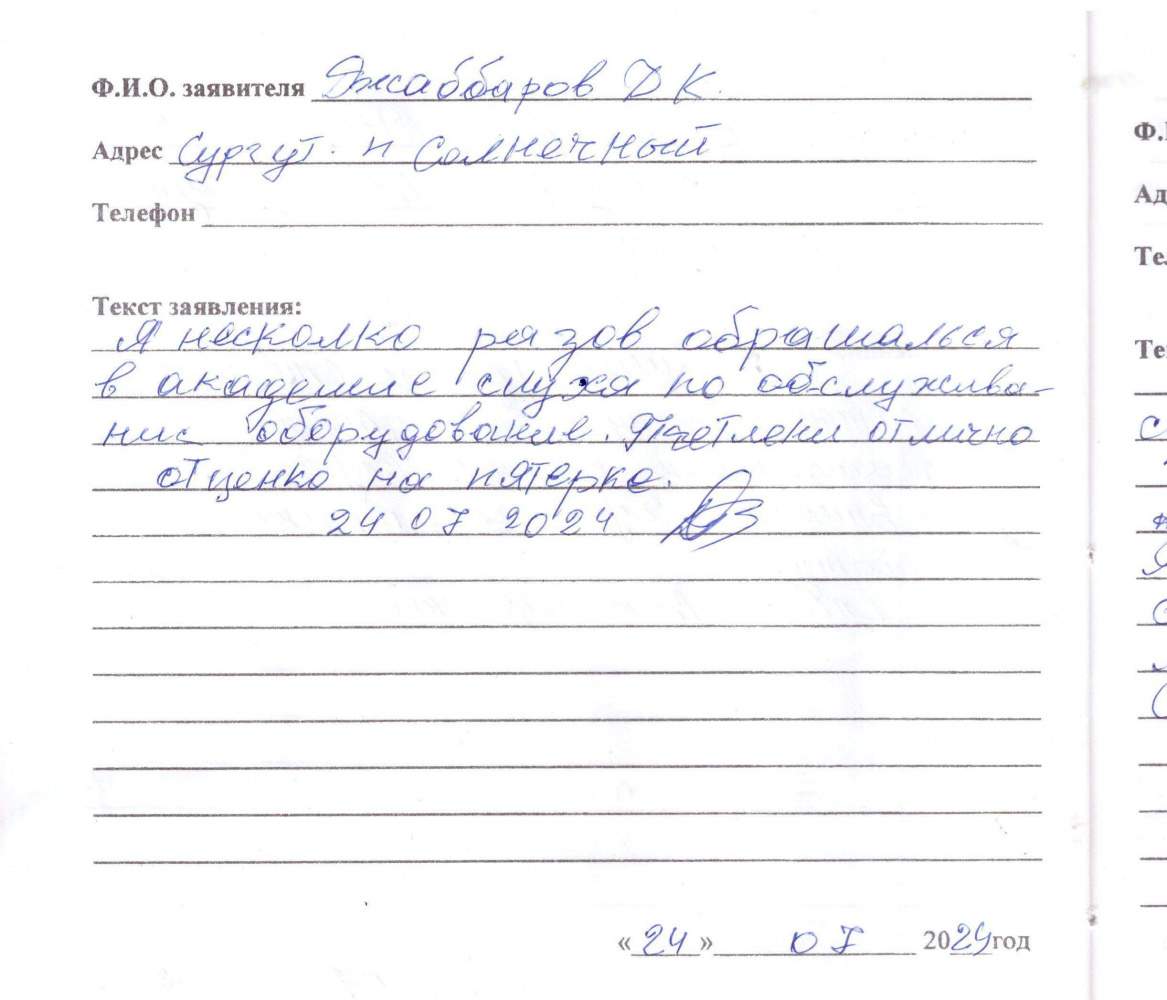 Ф.И.О. заявителя Джаббаров Д К.
Адрес Сургут. п Солнечный
Телефон
Текст заявления:
Я несколко разов обрашалься
в академие слуха по обслужива-
нис оборудование. отлично
отценко на пятерке.
24 07 2024
«24» 07 2024год
Ф.
Ад
Те